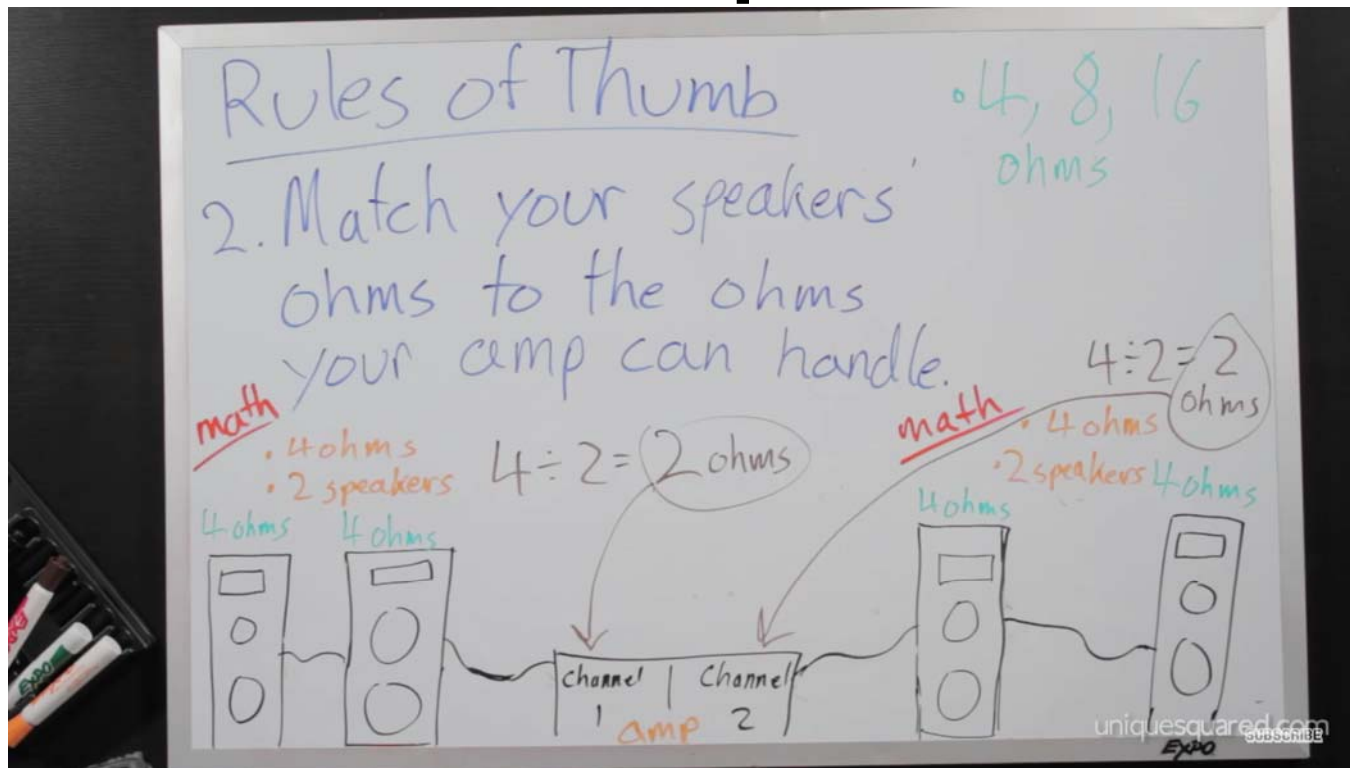 Rules of Thumb
• 4, 8, 16
ohms
2. Match your speakers'
ohms to the ohms
your amp can handle.
math
• 4 ohms
• 2 speakers
4 ÷ 2 = 2 ohms
math
• 4 ohms
• 2 speakers
4 ÷ 2 = 2
ohms
4 ohms
4 ohms
4 ohms
4 ohms
Channel
1
Channel
2
amp
uniquesquared.com
SUBSCRIBE
EXPO
EXPO